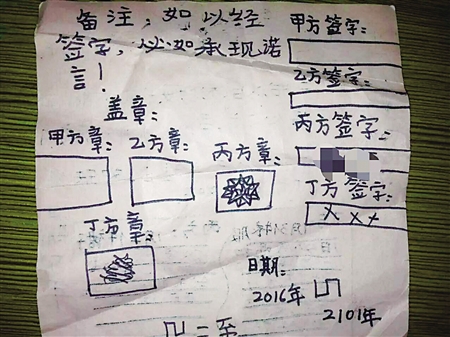 备注：如以经
签字，以如承现诺
言！
甲方签字：
乙方签字：
丙方签字：
丁方签字：
×××
盖章：
甲方章：
乙方章：
丙方章：
丁方章：
日期：
2016年
2101年
二至